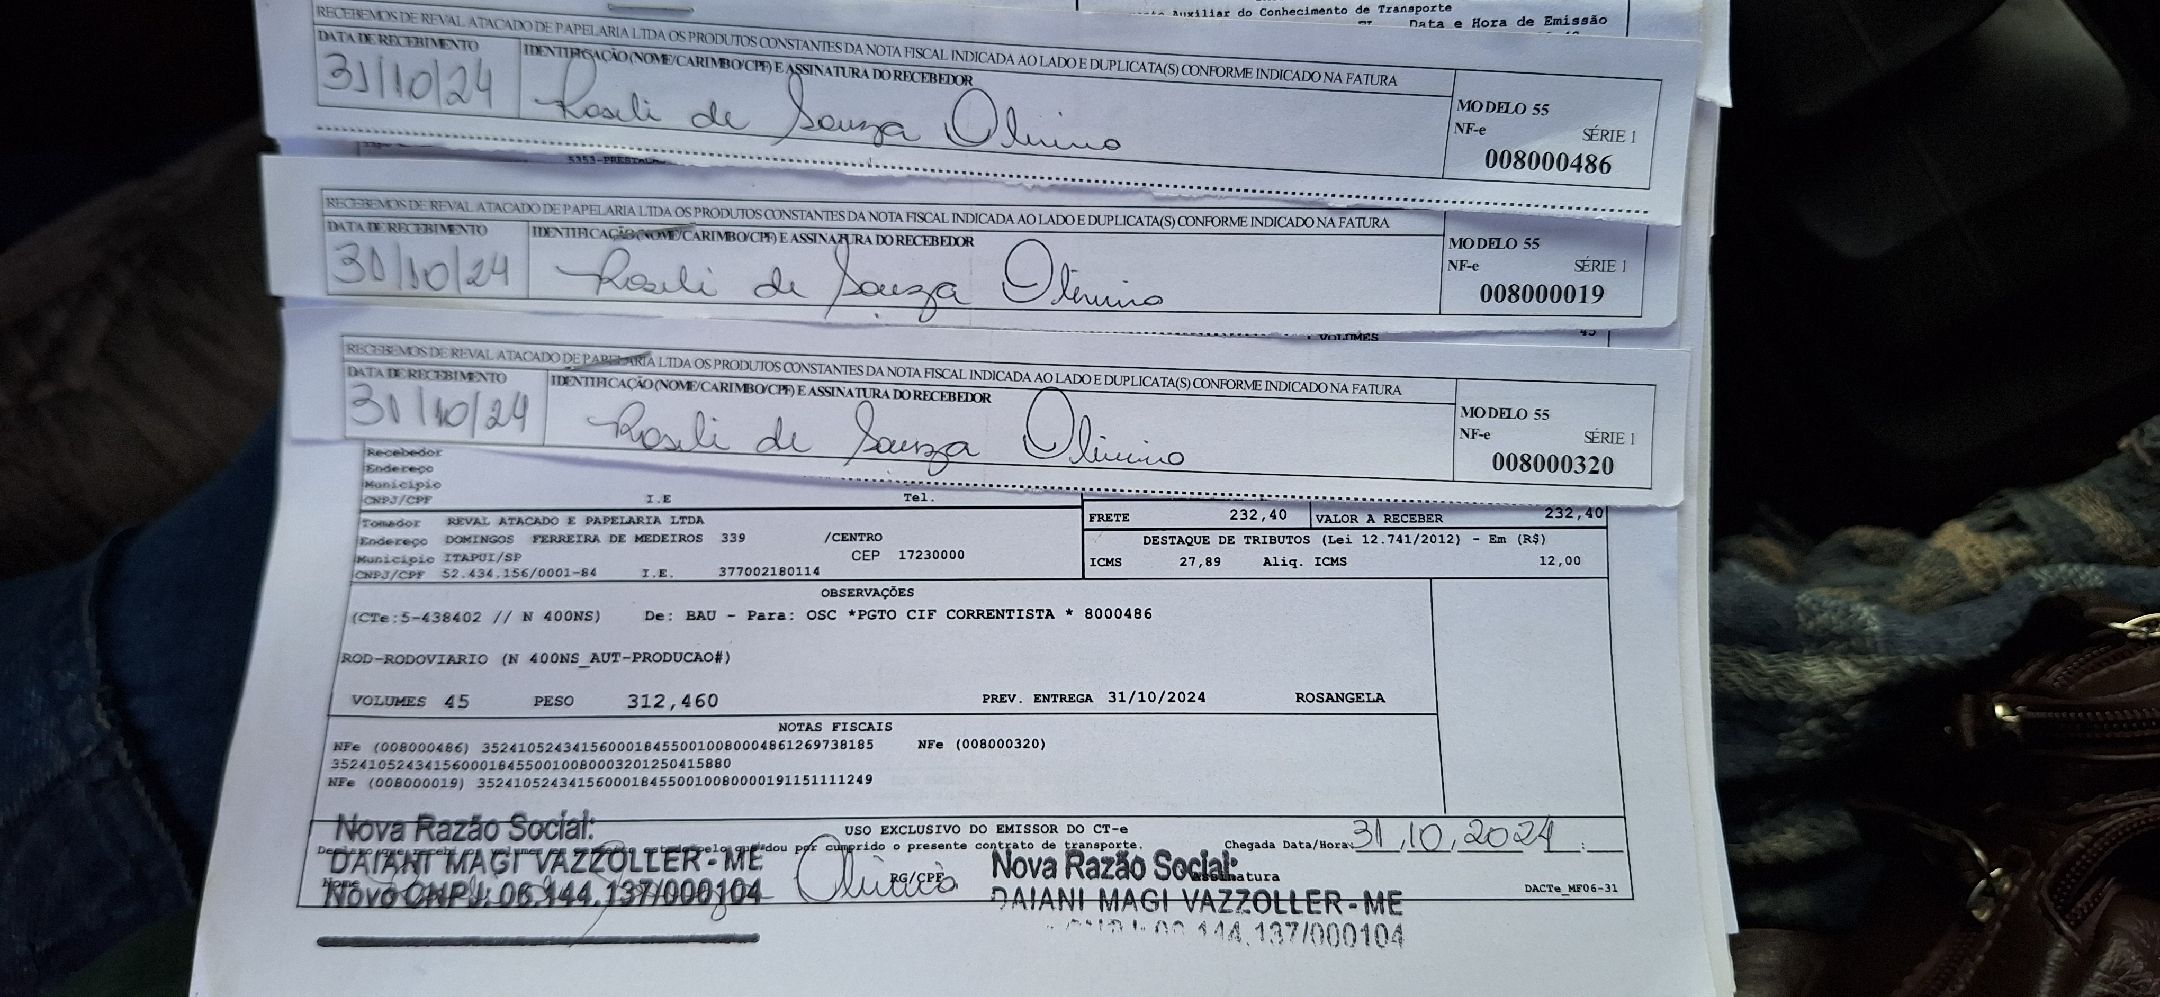 Auxiliar do Conhecimento de Transporte
Data e Hora de Emissão
RECEBEMOS DE REVAL ATACADO DE PAPELARIA LTDA OS PRODUTOS CONSTANTES DA NOTA FISCAL INDICADA AO LADO E DUPLICATA(S) CONFORME INDICADO NA FATURA
DATA DE RECEBIMENTO IDENTIFICAÇÃO (NOME/CARIMBO/CPF) E ASSINATURA DO RECEBEDOR
31/10/24 Roseli de Souza Olivino
MODELO 55
NF-e SÉRIE 1
008000486
RECEBEMOS DE REVAL ATACADO DE PAPELARIA LTDA OS PRODUTOS CONSTANTES DA NOTA FISCAL INDICADA AO LADO E DUPLICATA(S) CONFORME INDICADO NA FATURA
DATA DE RECEBIMENTO IDENTIFICAÇÃO (NOME/CARIMBO/CPF) E ASSINATURA DO RECEBEDOR
31/10/24 Roseli de Souza Olivino
MODELO 55
NF-e SÉRIE 1
008000019
VOLUMES 45
RECEBEMOS DE REVAL ATACADO DE PAPELARIA LTDA OS PRODUTOS CONSTANTES DA NOTA FISCAL INDICADA AO LADO E DUPLICATA(S) CONFORME INDICADO NA FATURA
DATA DE RECEBIMENTO IDENTIFICAÇÃO (NOME/CARIMBO/CPF) E ASSINATURA DO RECEBEDOR
31/10/24 Roseli de Souza Olivino
MODELO 55
NF-e SÉRIE 1
008000320
Recebedor
Endereço
Município
CNPJ/CPF I.E Tel.
Tomador REVAL ATACADO E PAPELARIA LTDA
Endereço DOMINGOS FERREIRA DE MEDEIROS 339 /CENTRO
Município ITAPUI/SP CEP 17230000
CNPJ/CPF 52.434.156/0001-84 I.E. 377002180114
FRETE 232,40 VALOR A RECEBER 232,40
DESTAQUE DE TRIBUTOS (Lei 12.741/2012) - Em (R$)
ICMS 27,89 Aliq. ICMS 12,00
OBSERVAÇÕES
(CTe:5-438402 // N 400NS) De: BAU - Para: OSC *PGTO CIF CORRENTISTA * 8000486
ROD-RODOVIARIO (N 400NS_AUT-PRODUCAO#)
VOLUMES 45 PESO 312,460 PREV. ENTREGA 31/10/2024 ROSANGELA
NOTAS FISCAIS
NFe (008000486) 35241052434156000184550010080004861269738185 NFe (008000320)
35241052434156000184550010080003201250415880
NFe (008000019) 35241052434156000184550010080000191151111249
USO EXCLUSIVO DO EMISSOR DO CT-e
dou por cumprido o presente contrato de transporte. Chegada Data/Hora: 31,10,2024 :
Nova Razão Social:
DAIANI MAGI VAZZOLLER - ME
Novo CNPJ: 06.144.137/000104
RG/CPF
Nova Razão Social:
DAIANI MAGI VAZZOLLER - ME
144.137/000104
DACTe_MF06-31